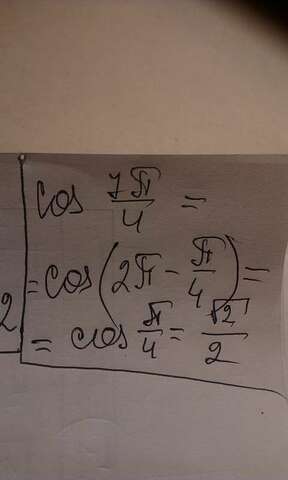 cos 7π/4 =
= cos(2π - π/4) =
= cos π/4 = √2/2
2